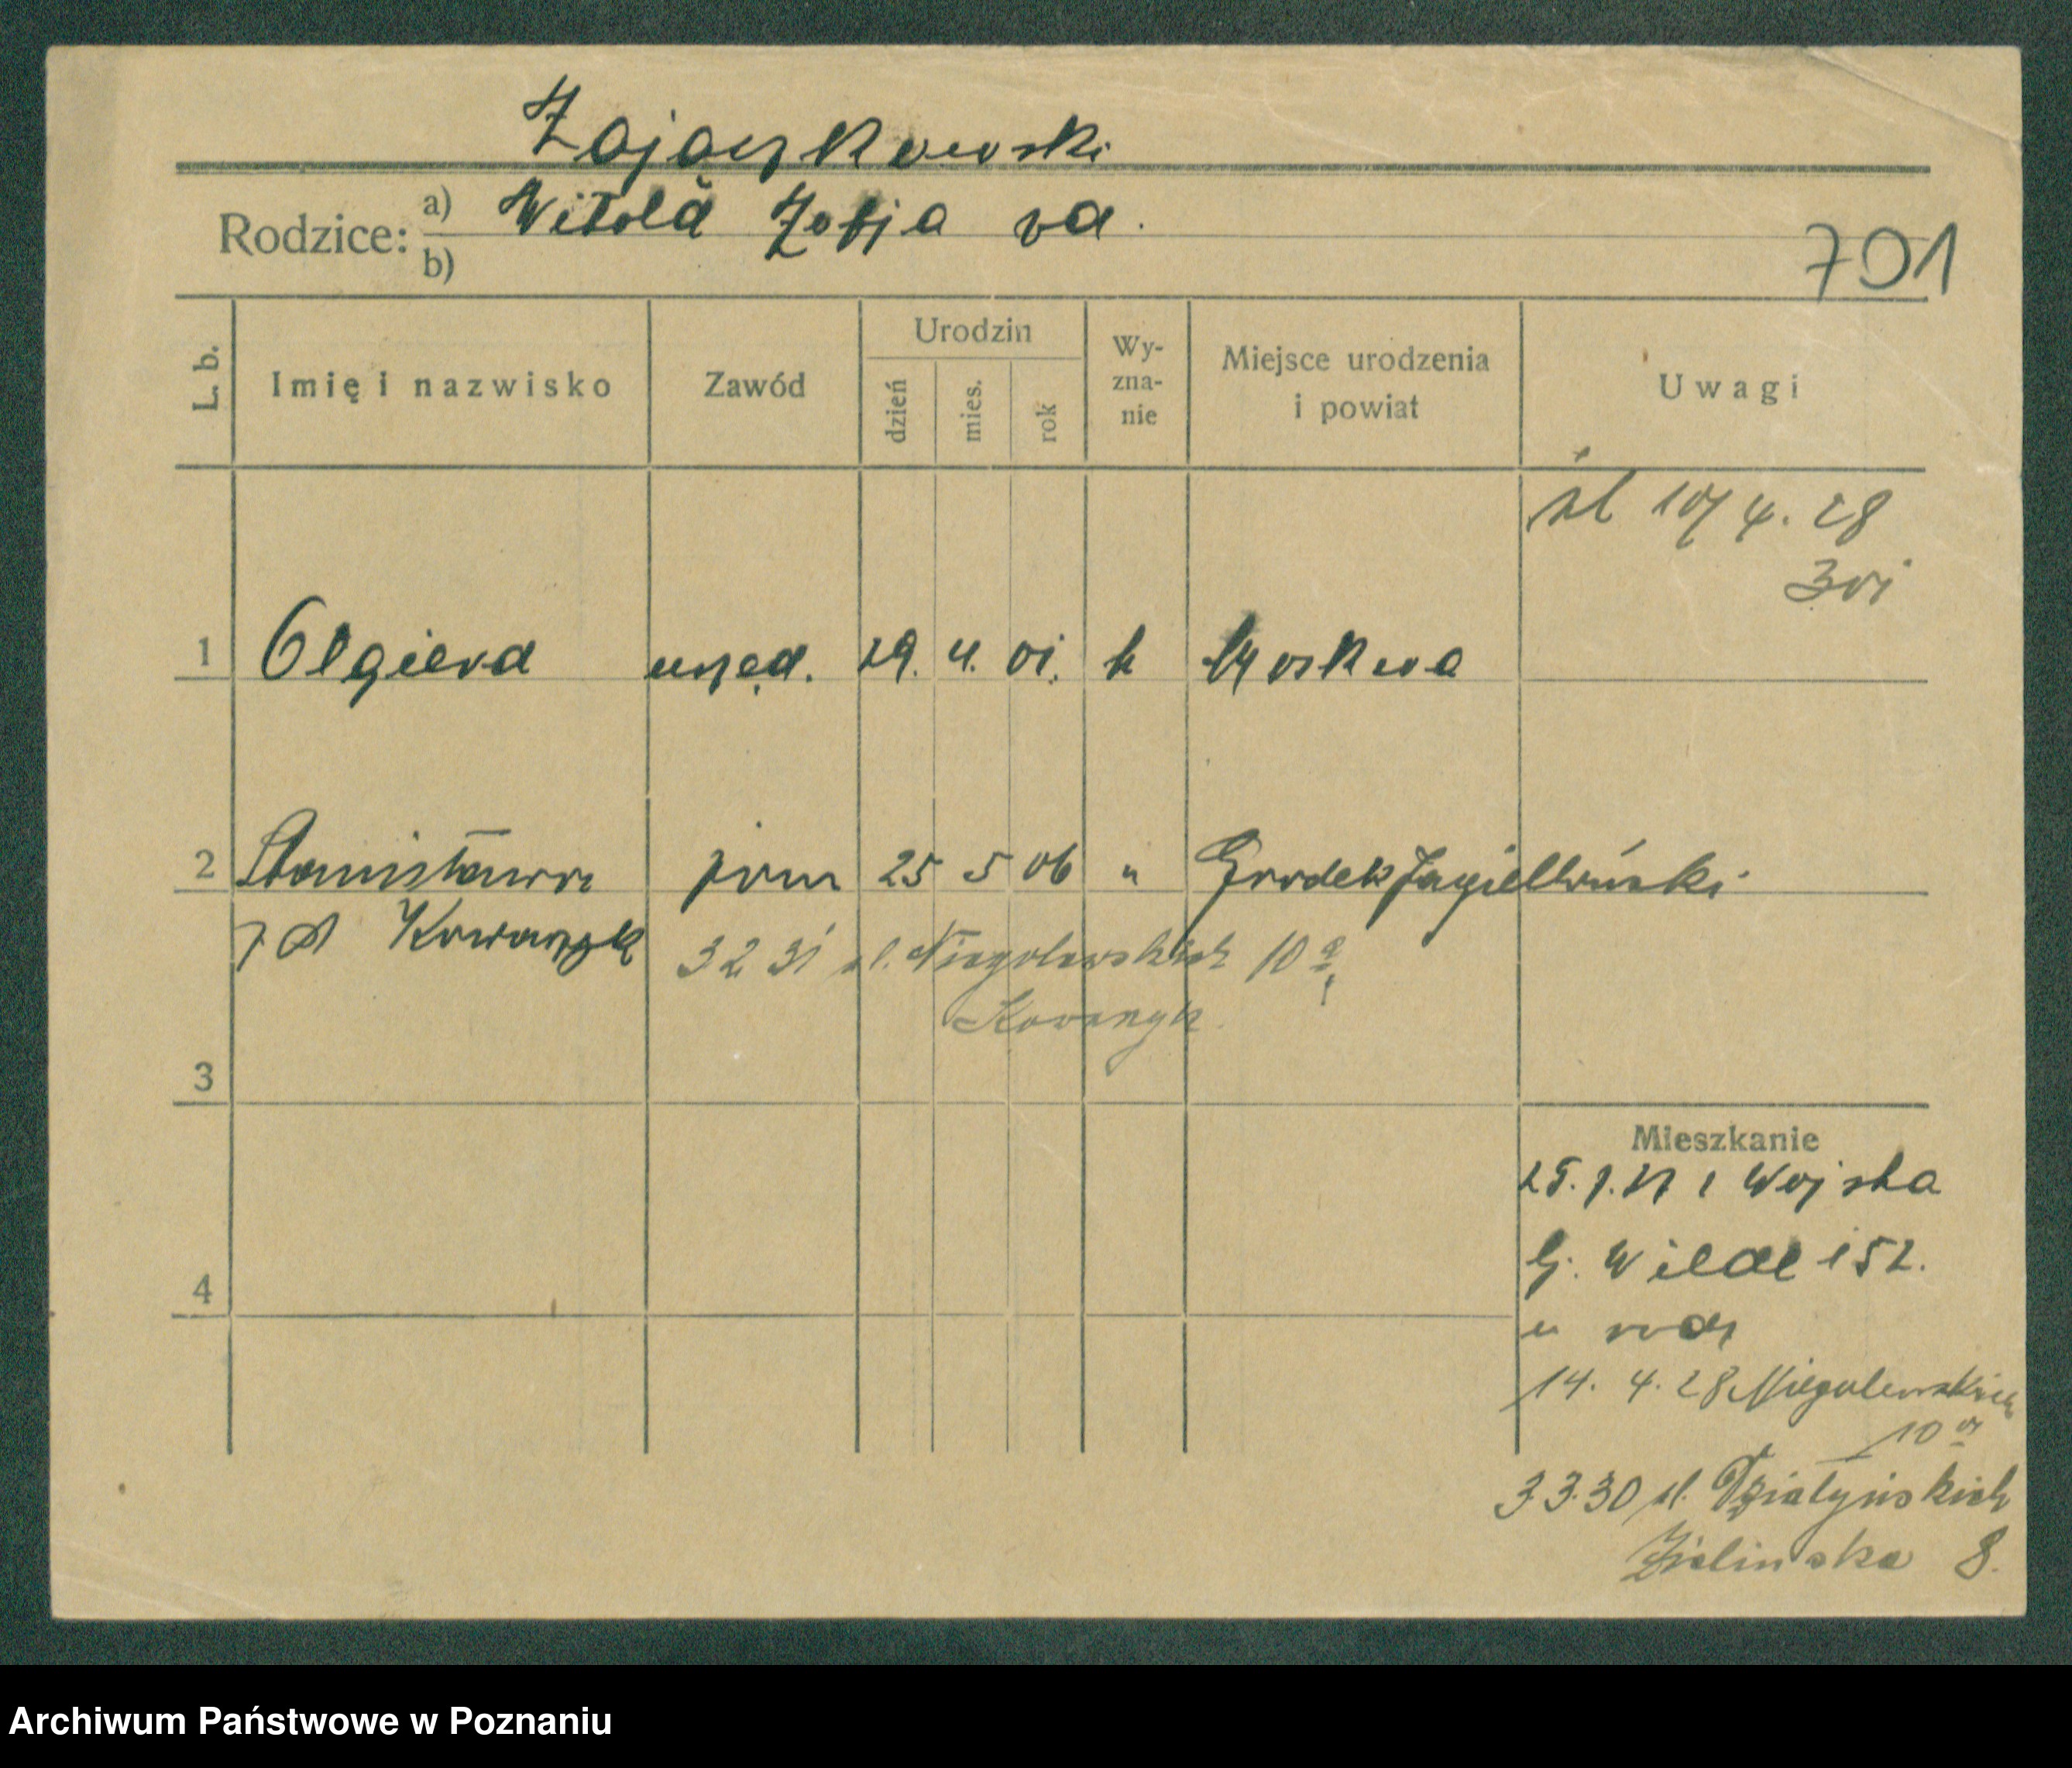 Zajączkowski
Rodzice: a) Witold Zofja
b)
701
L. b.
Imię i nazwisko
Zawód
Urodzin
dzień
mies.
rok
Wy-
zna-
nie
Miejsce urodzenia
i powiat
Uwagi
śl 10/4. 28
1 Olgierd urzęd. 29. 4. 01. k Moskwa
2 Stanisława 25 5 06 " Grodek Jagielloński
Kowarzyk 3 2 31 pl. Niegolewskich 10 a
Kowarzyk
3
Mieszkanie
Wojska
G. Wilda 152.
4
u rodz
14. 4. 28 Niegolewskich
10 a
3.3.30 pl. Działyńskich
Zielinska 8.
Archiwum Państwowe w Poznaniu